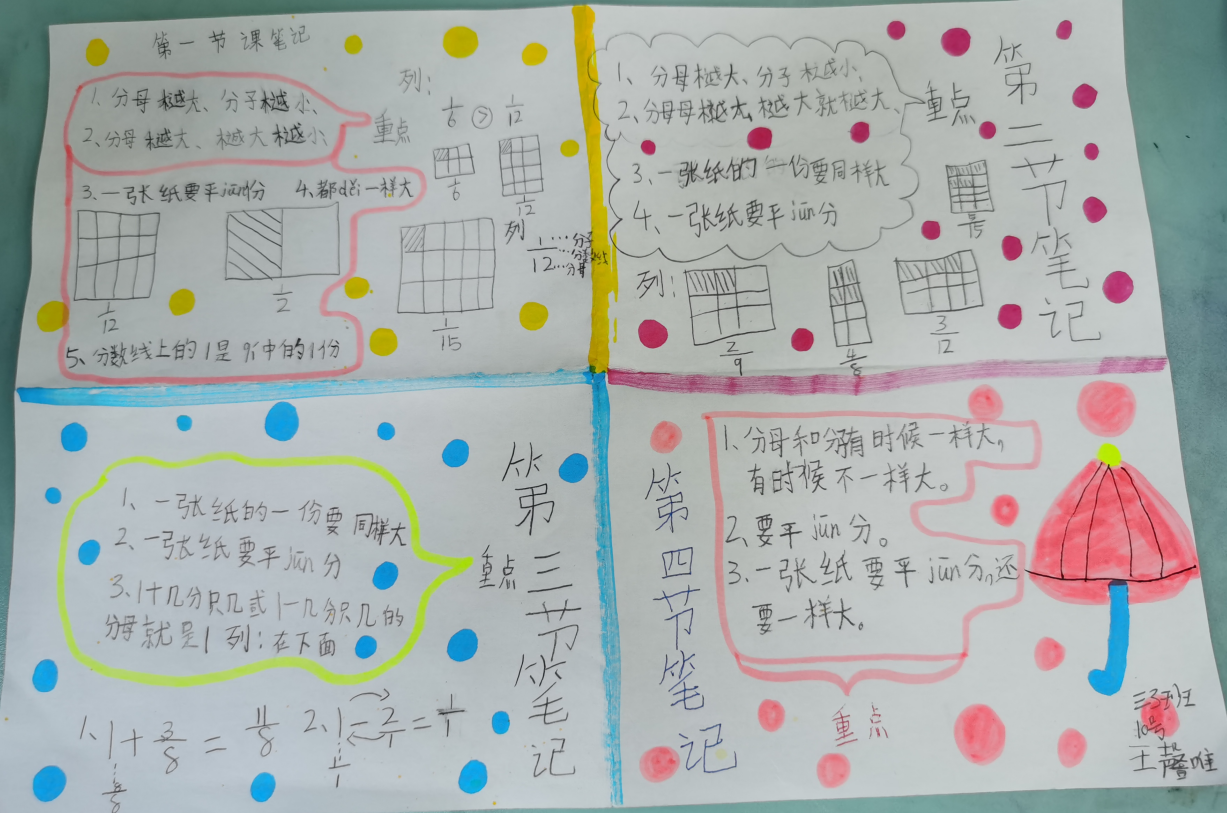 第一节课笔记
1、分母越大、分子越小、
2、分母越大、越大越小、
重点
3.一张纸要平jūn分 4、都déi一样大
1/12
1/2
5、分数线上的1是 中的1份
列：
1/6 > 1/12
1/6
1/12
列
1/12 …分子
…分数线
…分母
1/15
第二节笔记
1、分母越大、分子越小、
2、分母母越大、越大就越大、
重点
3.一张纸的一份要同样大
4、一张纸要平jūn分
列：
2/9
4/8
3/12
第三节笔记
1、一张纸的一份要同样大
2、一张纸要平jūn分
3、1+几分只几或1-几分只几的
分母就是1 列：在下面
重点
1、1+3/8=11/8
8/8
2、1-2/1=1/1
1/1
第四节笔记
1、分母和分有时候一样大，
有时候不一样大。
2、要平jūn分。
3、一张纸要平jūn分，还
要一样大。
重点
三3班
10号
王馨唯